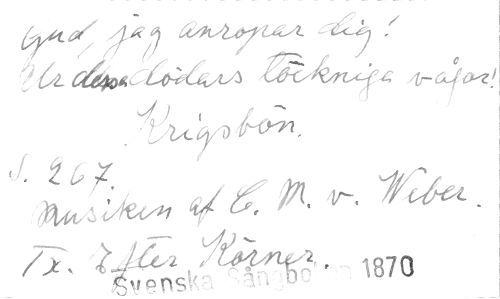 Gud, jag anropar dig!
Ur dessa dödars töckniga vågor!
Krigsbön.
S. 267.
Musiken af C. M. v. Weber.
Tx. Efter Körner.
Svenska Sångboken 1870